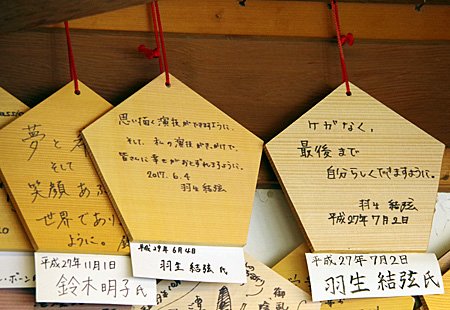 夢と
そして
笑顔あふ
世界であり
ように。
平成27年11月1日
鈴木明子氏
思い描く演技ができますように。
そして、私の演技がきっかけで、
皆さんに幸せがおとずれますように。
2017.6.4
羽生結弦
平成29年6月4日
羽生結弦氏
ケガなく、
最後まで
自分らしくできますように。
羽生結弦
平成27年7月2日
平成27年7月2日
羽生結弦氏